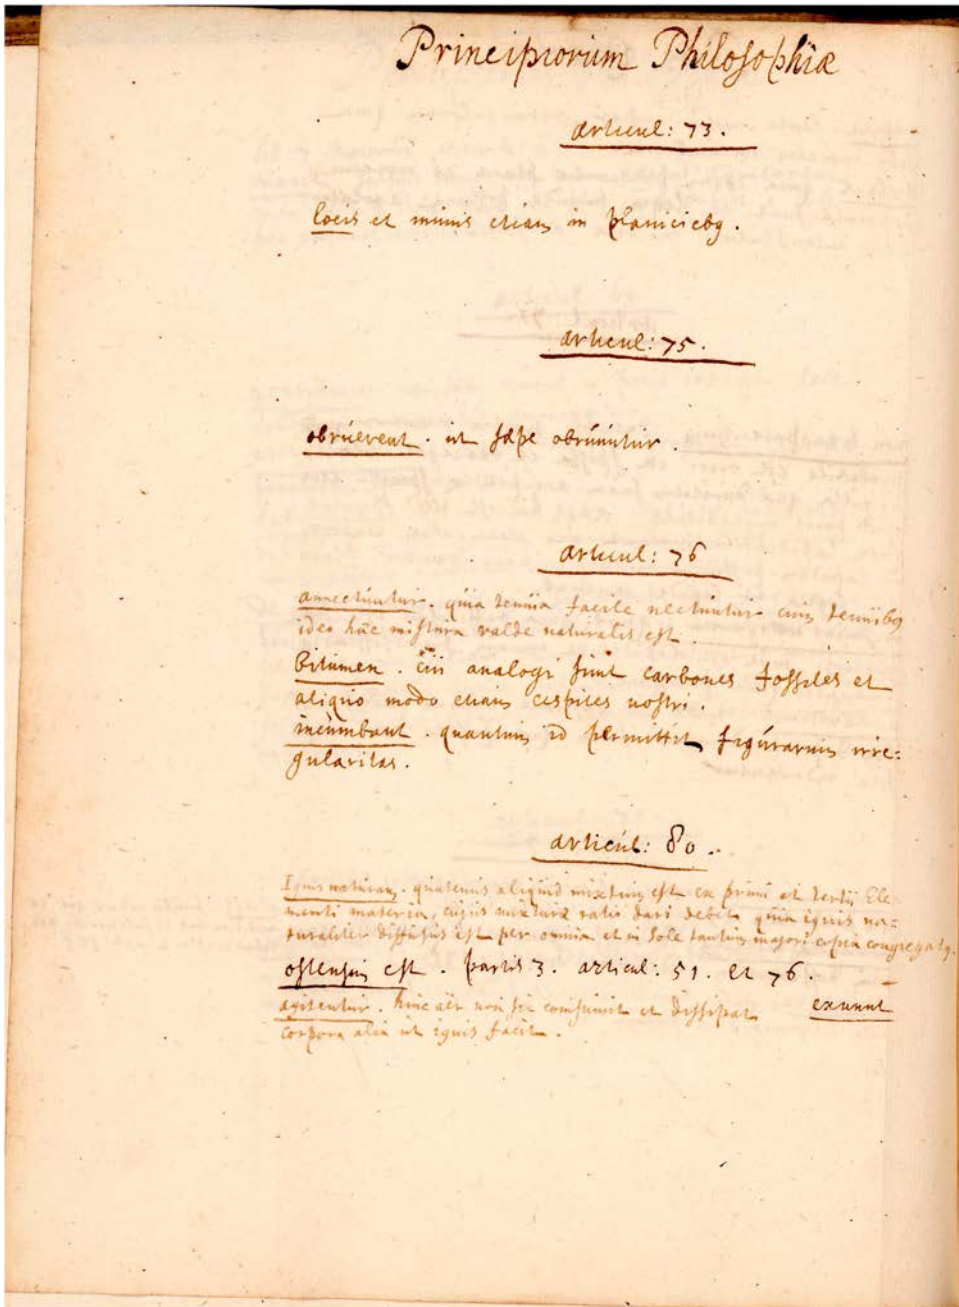 Principiorum Philosophiæ
articul: 73.
locis et minis etiam in planiciebq.
articul: 75.
obruerent. ut sæpe obruuntur.
articul: 76
annectuntur. quia tenuia facile nectuntur cum tenuibq
ideo hæc mistura valde naturalis est.
bitumen. cui analogi sunt carbones fossiles et
aliquo modo etiam cespites nostri.
incumbant. quantum id permittit figurarum irre:
gularitas.
articul: 80.
Ignis naturam. quatenus aliquid mixtum est ex primi et tertii Ele-
menti materia, cujus mixturæ ratio dari debet quia ignis na=
turaliter diffusus est per omnia et in Sole tantum majori copia congregatq.
ostensum est. partis 3. articul: 51. et 76.
agitentur. hinc aër non sic consumit et dissipat
corpora alia ut ignis facit.
exeunt